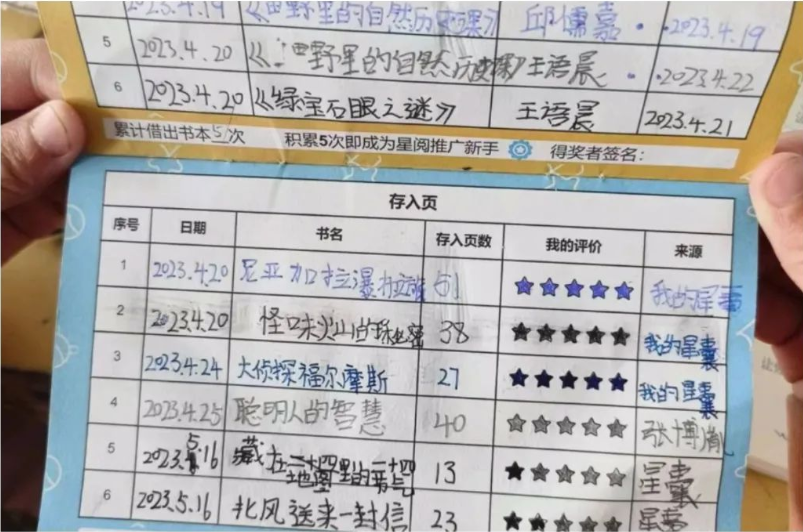 2023.4.19 《田野里的自然历史课》 邱儒嘉 2023.4.19
5 2023.4.20 《田野里的自然历史课》 王语晨 2023.4.22
6 2023.4.20 《绿宝石眼之谜》 王语晨 2023.4.21
累计借出书本5次 积累5次即成为星阅推广新手 得奖者签名：
存入页
序号 日期 书名 存入页数 我的评价 来源
1 2023.4.20 尼亚加拉瀑 51 ★★★★★ 我的星
2 2023.4.20 怪味火山的秘密 38 ★★★★★ 我的星囊
3 2023.4.24 大侦探福尔摩斯 27 ★★★★★ 我的星囊
4 2023.4.25 聪明人的智慧 40 ★★★★★ 张博胤
5 2023.5.16 藏在地图里的二十四节气 13 ★★★★★ 星囊
6 2023.5.16 北风送来一封信 23 ★★★★★ 星